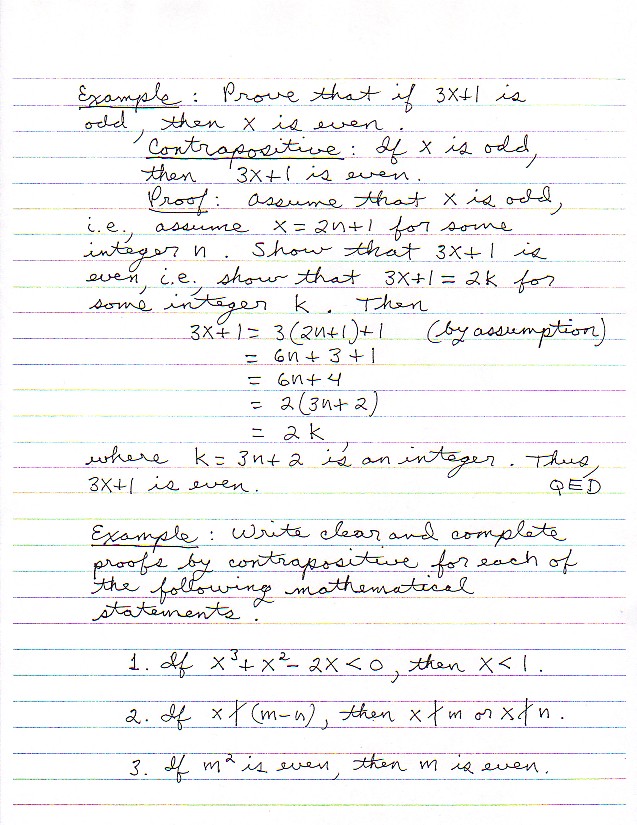 Example : Prove that if 3x+1 is
odd, then x is even.
Contrapositive : If x is odd,
then 3x+1 is even.
Proof : Assume that x is odd,
i.e., assume x = 2n+1 for some
integer n. Show that 3x+1 is
even, i.e., show that 3x+1 = 2k for
some integer k. Then
3x+1 = 3(2n+1)+1 (by assumption)
= 6n+3+1
= 6n+4
= 2(3n+2)
= 2k,
where k = 3n+2 is an integer. Thus,
3x+1 is even. QED
Example : Write clear and complete
proofs by contrapositive for each of
the following mathematical
statements.
1. If x³+x²-2x<0, then x<1.
2. If x∤(m-n), then x∤m or x∤n.
3. If m² is even, then m is even.